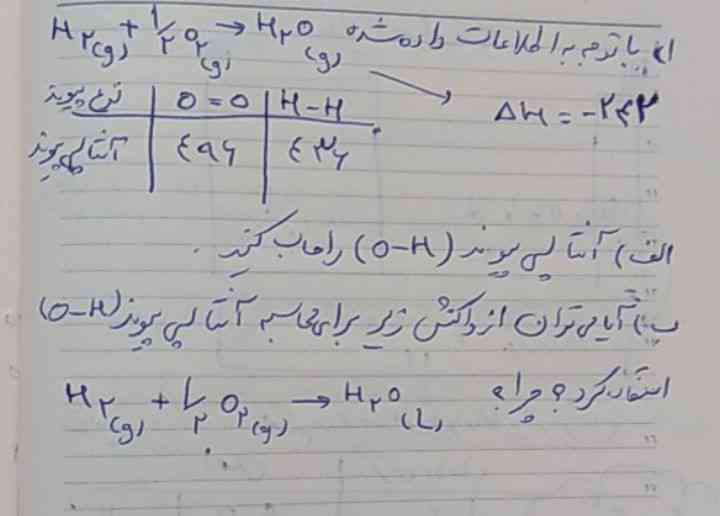 ۱) با توجه به اطلاعات داده شده H₂(g) + 1/2 O₂(g) → H₂O(g)
ΔH = -۲۴۲
نوع پیوند | O=O | H-H
آنتالپی پیوند | ۴۹۶ | ۴۳۶
الف) آنتالپی پیوند (O-H) را حساب کنید.
ب) آیا می توان از واکنش زیر برای محاسبه آنتالپی پیوند (O-H)
استفاده کرد؟ چرا؟ H₂(g) + 1/2 O₂(g) → H₂O(L)